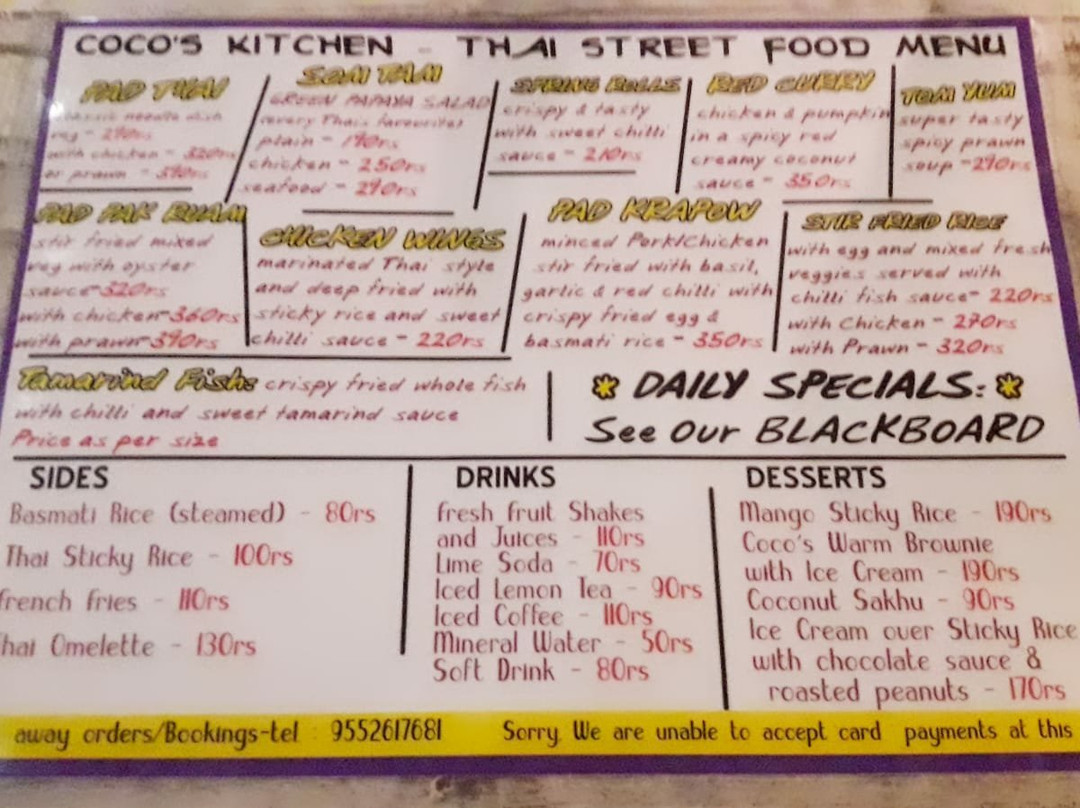 COCO'S KITCHEN - THAI STREET FOOD MENU
PAD THAI
classic noodle dish
veg -
with chicken - 320rs
or prawn - 390rs
SOM TAM
GREEN PAPAYA SALAD
(every Thai's favourite)
plain - 190rs
chicken - 250rs
seafood - 290rs
SPRING ROLLS
crispy & tasty
with sweet chilli
sauce - 210rs
RED CURRY
chicken & pumpkin
in a spicy red
creamy coconut
sauce - 350rs
TOM YUM
super tasty
spicy prawn
soup -290rs
PAD PAK RUAM
stir fried mixed
veg with oyster
sauce-320rs
with chicken-360rs
with prawn-390rs
CHICKEN WINGS
marinated Thai style
and deep fried with
sticky rice and sweet
chilli sauce - 220rs
PAD KRAPOW
minced Pork/Chicken
stir fried with basil,
garlic & red chilli with
crispy fried egg &
basmati rice - 350rs
STIR FRIED RICE
with egg and mixed fresh
veggies served with
chilli fish sauce- 220rs
with Chicken - 270rs
with Prawn - 320rs
Tamarind Fish: crispy fried whole fish
with chilli and sweet tamarind sauce
Price as per size
* DAILY SPECIALS: *
See Our BLACKBOARD
SIDES
Basmati Rice (steamed) - 80rs
Thai Sticky Rice - 100rs
french fries - 110rs
hai Omelette - 130rs
DRINKS
fresh fruit Shakes
and Juices - 110rs
Lime Soda - 70rs
Iced Lemon Tea - 90rs
Iced Coffee - 110rs
Mineral Water - 50rs
Soft Drink - 80rs
DESSERTS
Mango Sticky Rice - 190rs
Coco's Warm Brownie
with Ice Cream - 190rs
Coconut Sakhu - 90rs
Ice Cream over Sticky Rice
with chocolate sauce &
roasted peanuts - 170rs
away orders/Bookings-tel : 9552617681 Sorry. We are unable to accept card payments at this